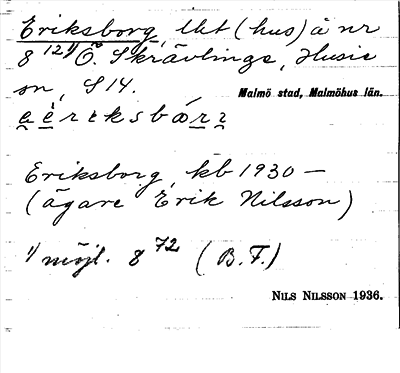 Eriksborg, lht (hus) å nr
8 12 1/ Ö. Skrävlinge, Husie
sn, S14.
Malmö stad, Malmöhus län.
Eriksborg, kb 1930 —
(ägare Erik Nilsson)
1/ möjl. 8 72 (B.F.)
NILS NILSSON 1936.